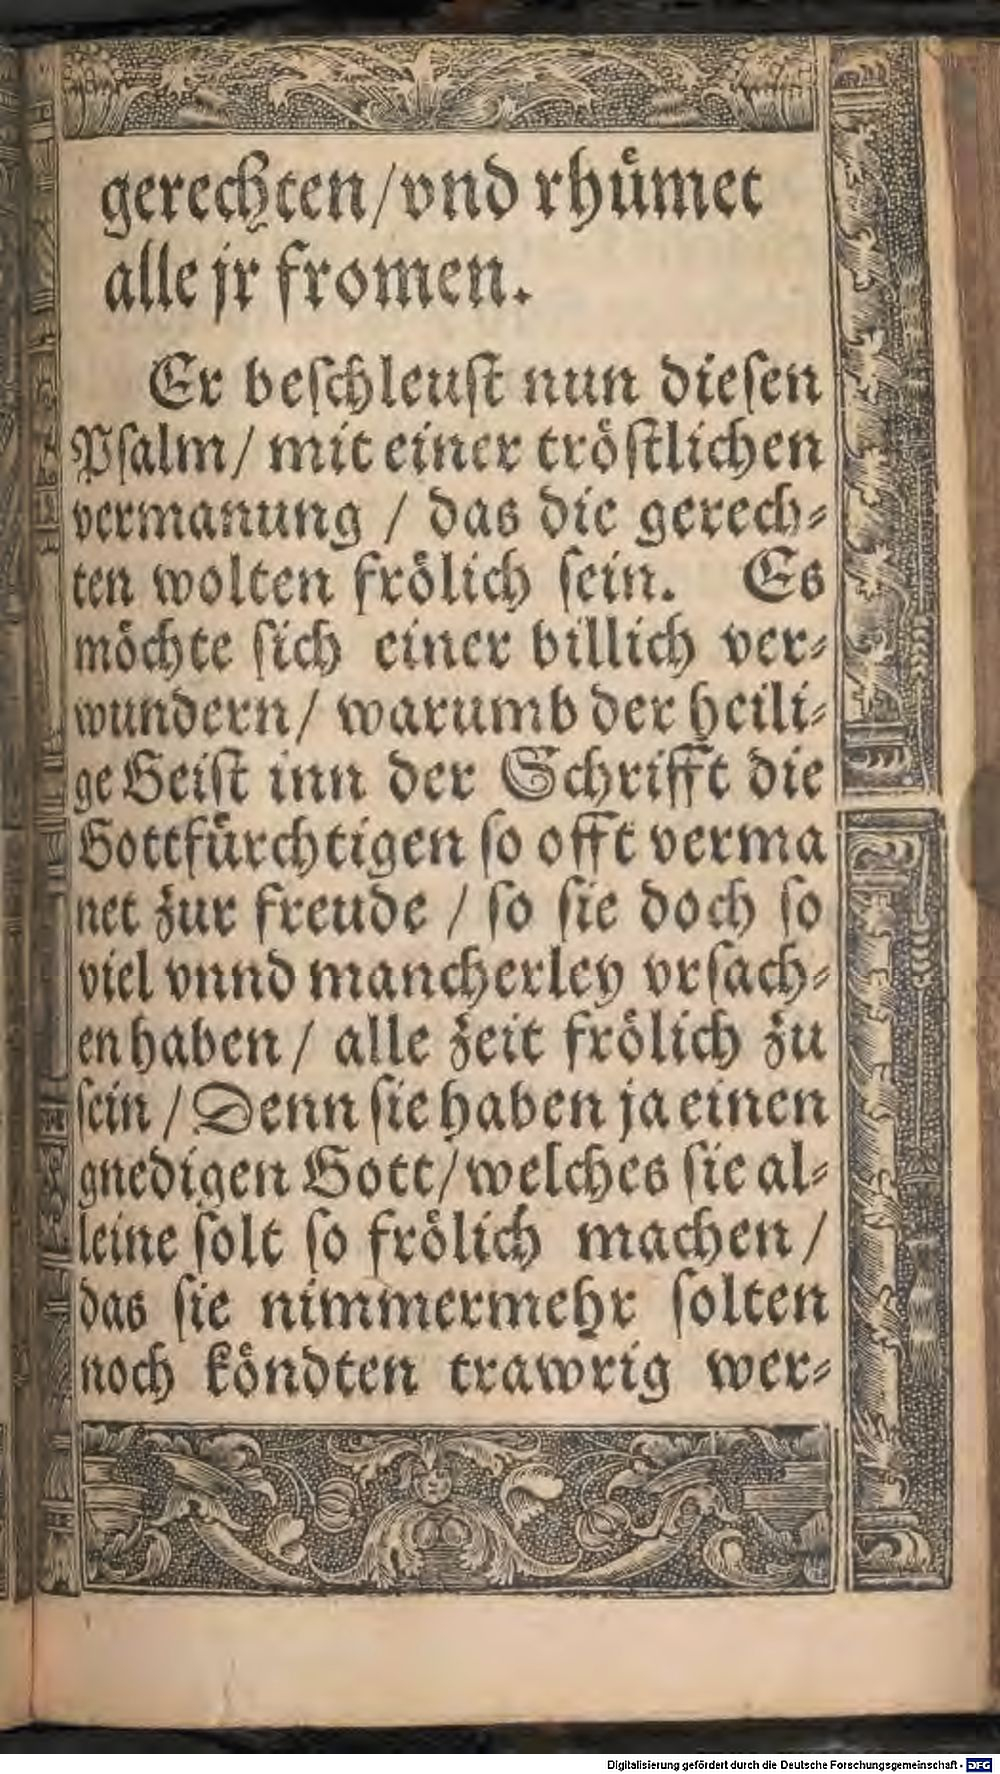 gerechten/vnd rhuͤmet
alle jr fromen.
Er beſchleuſt nun dieſen
Pſalm/ mit einer troͤſtlichen
vermanung / das die gerech⸗
ten wolten froͤlich ſein. Es
moͤchte ſich einer billich ver⸗
wundern/ warumb der heili⸗
ge Geiſt inn der Schrifft die
Gottfuͤrchtigen ſo offt verma
net zur freude / ſo ſie doch ſo
viel vnnd mancherley vrſach⸗
en haben/ alle zeit froͤlich zu
ſein / Denn ſie haben ja einen
gnedigen Gott/welches ſie al⸗
leine ſolt ſo froͤlich machen /
das ſie nimmermehr ſolten
noch koͤndten trawrig wer⸗
Digitalisierung gefördert durch die Deutsche Forschungsgemeinschaft - DFG